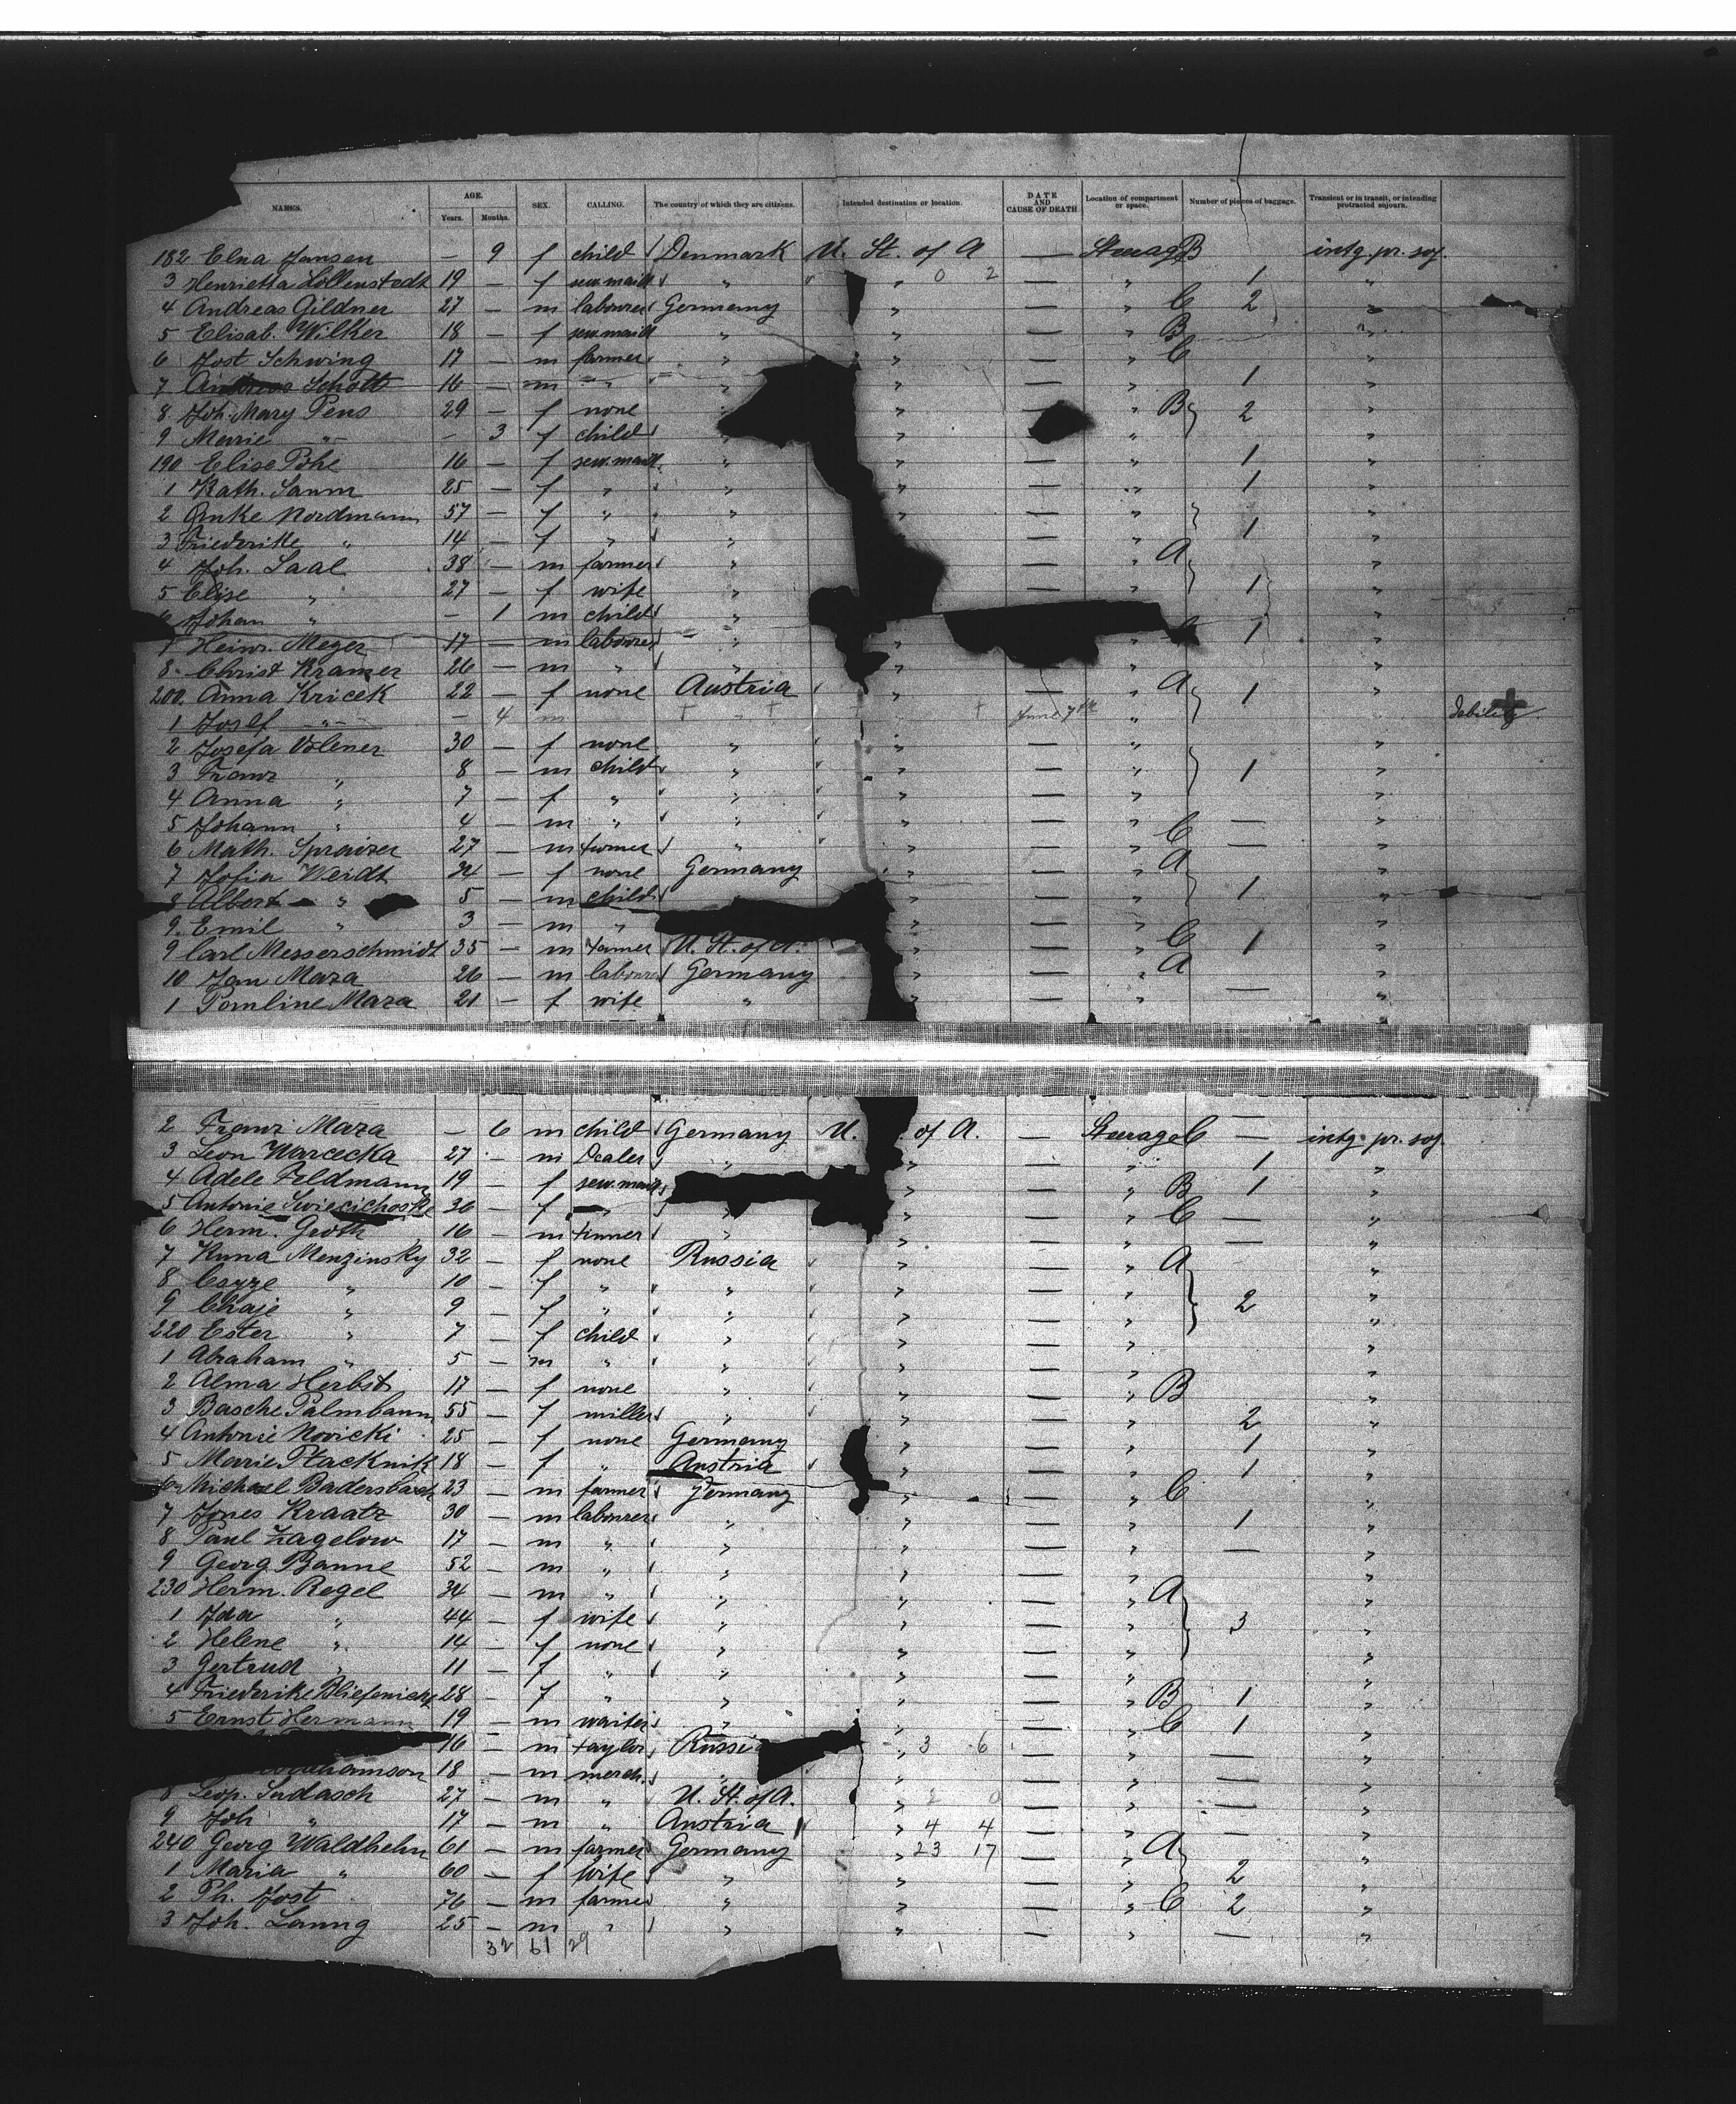 NAMES. AGE. Years. Months. SEX. CALLING. The country of which they are citizens. Intended destination or location. DATE AND CAUSE OF DEATH Location of compartment or space. Number of pieces of baggage. Transient or in transit, or intending protracted sojourn.
182 Elna Jansen — 9 f child Denmark U. St. of A — Steerage B intg. pr. soj.
3 Henrietta Lollenstedt 19 — f sew. maid " " 0 2 — " 1 "
4 Andreas Gildner 27 — m labourer Germany " — " C 2 "
5 Elisab. Wilker 18 — f sew. maid " " — " B "
6 Jost Schwing 17 — m farmer " " — " C "
7 Schott 16 — m " " " — " 1 "
8 Joh. Mary Pens 29 — f none " " — " B 2 "
9 Marie " — 3 f child " " "
190 Elise Pohe 16 — f sew. maid " " — " 1 "
1 Kath. Saum 25 — f " " " — " 1 "
2 Anke Nordmann 57 — f " " " — " "
3 Friederike " 14 — f " " " — " 1 "
4 Joh. Saal 38 — m farmer " — " A "
5 Elise " 27 — f wife " — " 1 "
Johan " — 1 m child " "
7 Heinr. Meyer 17 — m labourer " " " 1 "
8 Christ Kramer 26 — m " " " — " "
200. Anna Kricek 22 — f none Austria " — " A 1 "
1 Josef " — 4 m " June 7th " debility
2 Josefa Volener 30 — f none " " — " "
3 Franz " 8 — m child " " — " 1 "
4 Anna " 7 — f " " " — " "
5 Johann " 4 — m " " " — " C — "
6 Math. Spreizer 27 — m farmer " " — " A — "
7 Sofia Weidt 34 — f none Germany " — " "
8 Albert " 5 — m child " — " 1 "
9. Emil " 3 — m " " — " "
9 Carl Messerschmidt 35 — m farmer U. St. of A. " — " C 1 "
10 Jan Maza 26 — m labourer Germany " — " A "
1 Pomline Maza 21 — f wife " " — " — "
2 Franz Maza — 6 m child Germany U. of A. — Steerage C — intg. pr. soj.
3 Leon Warcecka 27 — m Dealer " " — " 1 "
4 Adele Feldmann 19 — f sew. maid " — " B 1 "
5 Antonie 36 — f " " " — " C — "
6 Herm. Groth 16 — m farmer " " — " — "
7 Menzinsky 32 — f none Russia " — " A "
8 " 10 — f " " " — " "
9 Chaje " 9 — f " " " — " 2 "
220 Ester " 7 — f child " " — " "
1 Abraham " 5 — m " " " — " "
2 Alma Herbst 17 — f none " " — " B "
3 Basche Palmbaum 55 — f miller " " — " 2 "
4 Antonie Novicki 25 — f none Germany " — " 1 "
5 Marie Ptacknik 18 — f " Austria " — " 1 "
Michael Badersbach 23 — m farmer Germany " — " C "
7 Jones Kraatz 30 — m labourer " " — " 1 "
8 Paul Zagelow 17 — m " " " — " — "
9 Georg Banne 52 — m " " " — " "
230 Herm. Regel 34 — m " " " — " A "
1 Ida " 44 — f wife " " — " 3 "
2 Helene " 14 — f none " " — " "
3 Gertrud " 11 — f " " " — " "
4 Friederike 28 — f " " " — " B 1 "
5 Ernst Hermann 19 — m waiter " " — " C 1 "
16 — m taylor Russia " 3 6 — " — "
18 — m merch. " " — " — "
8 Leop. Sudasch 27 — m " U. St. of A. " 2 0 — " — "
9 Joh " 17 — m " Austria " 4 4 — " — "
240 Georg Waldhelm 61 — m farmer Germany " 23 17 — " A "
1 Maria " 60 — f wife " " — " 2 "
2 Ph. Jost 76 — m farmer " " — " C 2 "
3 Joh. Laung 25 — m " " " — " — "
32 61 29